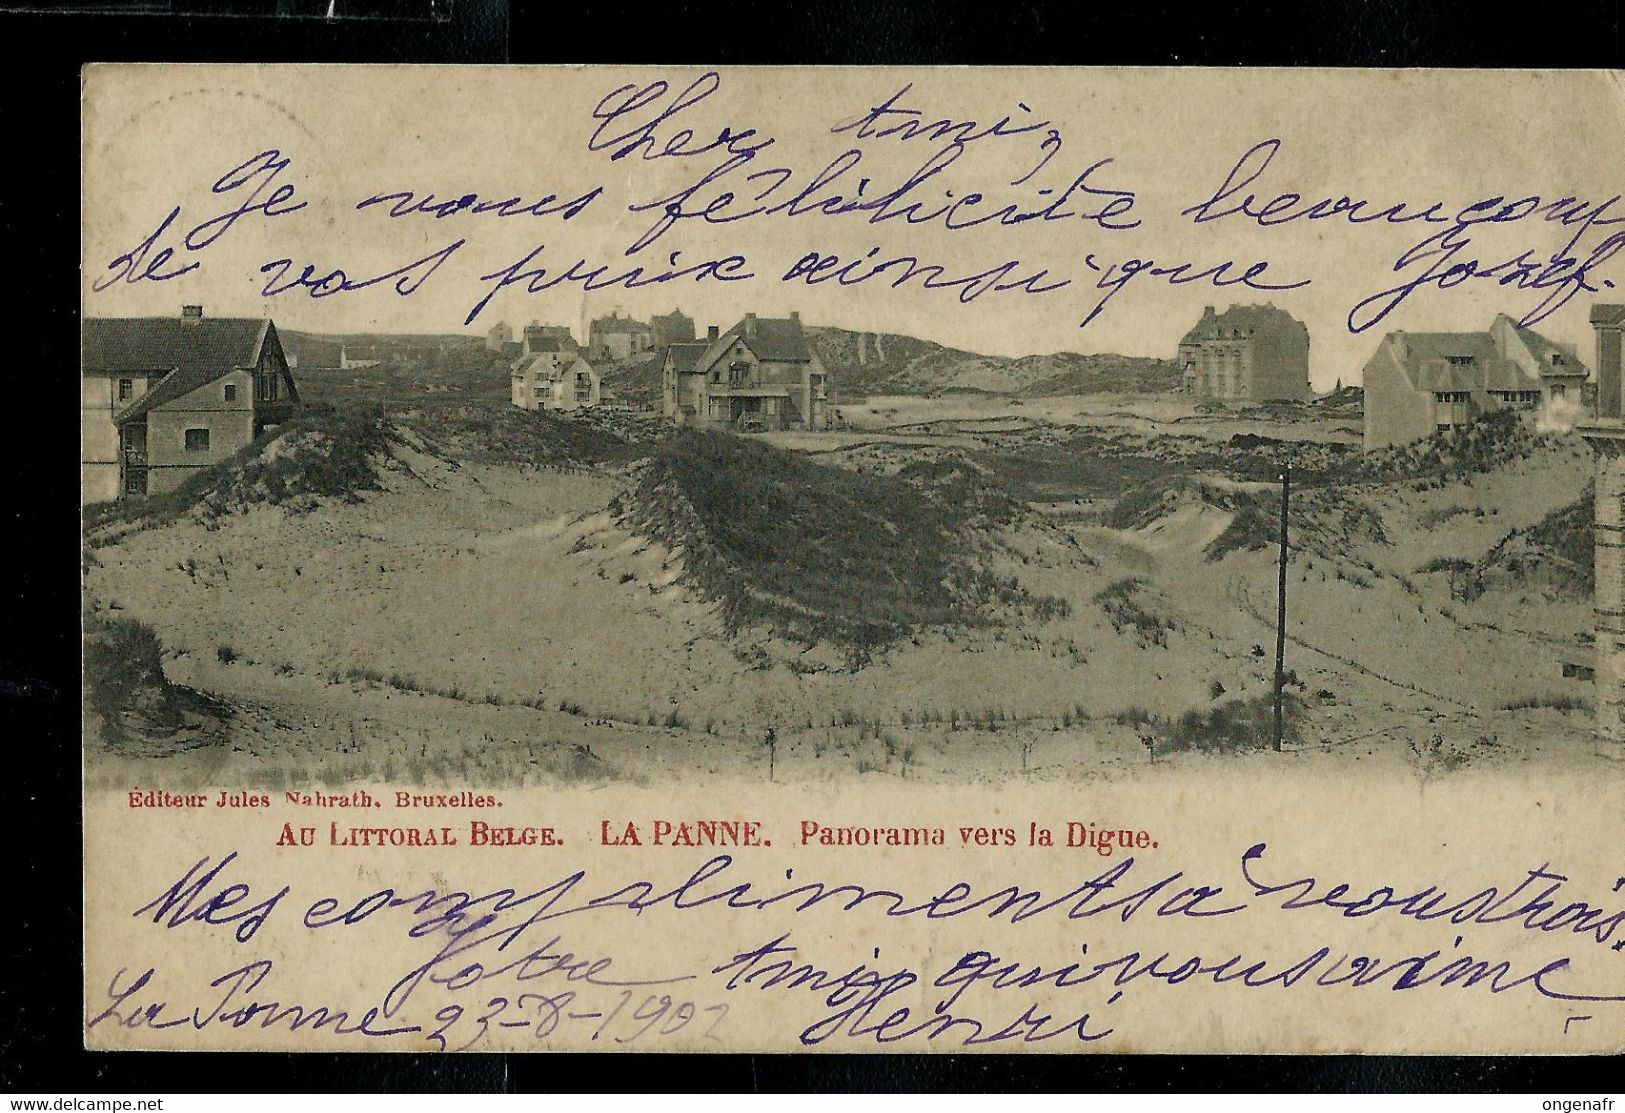 Cher Ami,
Je vous félilicite beaucoup
de vos prix ainsi que Jozef.
Éditeur Jules Nahrath, Bruxelles.
AU LITTORAL BELGE. LA PANNE. Panorama vers la Digue.
Mes compliments à vous trois.
Votre Ami qui vous aime
La Panne 23-8-1902 Henri
delcampe.net
ongenafr